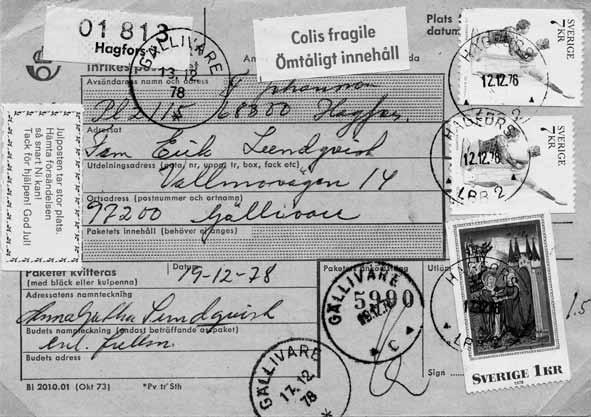 01 813
Hagfors
Colis fragile
Ömtåligt innehåll
Plats
datum
SVERIGE
7 KR
SVERIGE
7 KR
GÄLLIVARE
13.12
78
HAGFORS
12.12.78
HAGFORS
12.12.78
LBB 2
Inrikes
Avsändarens namn och adress
Johansson
Pl 2115 68300 Hagfors
Adressat
Sam Erik Lundqvist
Utdelningsadress (gata, nr, uppg, tr, box, fack etc)
Vallmovägen 14
Ortsadress (postnummer och ortnamn)
97200 Gällivare
Paketets innehåll (behöver ej anges)
Julposten tar stor plats.
Hämta försändelsen
så snart Ni kan!
Tack för hjälpen! God Jul!
Paketet kvitteras
(med bläck eller kulpenna)
Datum
19-12-78
Paketets ankomststäng
5900
Utlän
Adressatens namnteckning
Lundqvist
Budets namnteckning (endast beträffande a-paket)
Budets adress
GÄLLIVARE
C
GÄLLIVARE
17.12
78
Sign
1.5
SVERIGE 1KR
BI 2010.01 (Okt 73) *Pv tr Sth